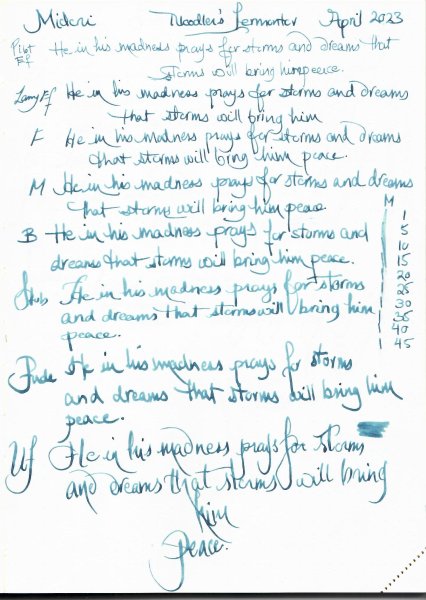 Midori Noodler's Lermontov April 2023
Pilot EF He in his madness prays for storms and dreams that
storms will bring him peace.
Lamy EF He in his madness prays for storms and dreams
that storms will bring him
F He in his madness prays for storms and dreams
that storms will bring him peace.
M He in his madness prays for storms and dreams
that storms will bring him peace.
M
1
5
10
15
20
25
30
35
40
45
B He in his madness prays for storms and
dreams that storms will bring him peace.
Stub He in his madness prays for storms
and dreams that storms will bring him
peace.
Fude He in his madness prays for storms
and dreams that storms will bring him
peace.
Uf He in his madness prays for storms
and dreams that storms will bring
him
peace.